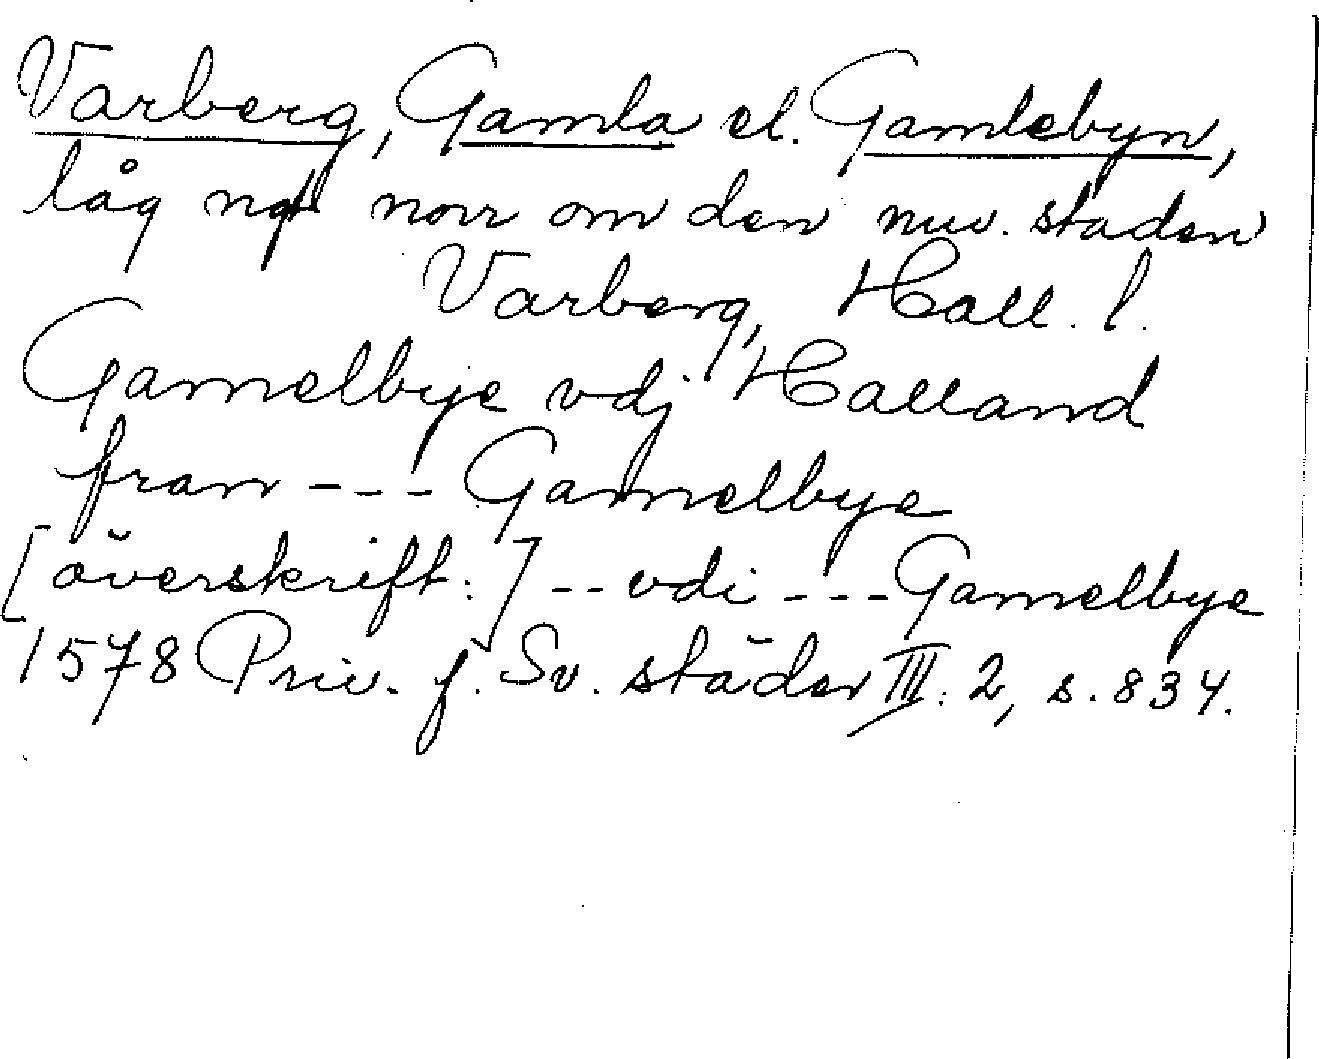 Varberg, Gamla el. Gamlebyn,
låg ngt norr om den nuv. staden
Varberg, Hall. l.
Gamelbye vdj Halland
fram --- Gamelbye
[överskrift:] -- vdi --- Gamelbye
1578 Priv. f. Sv. städer III: 2, s. 834.